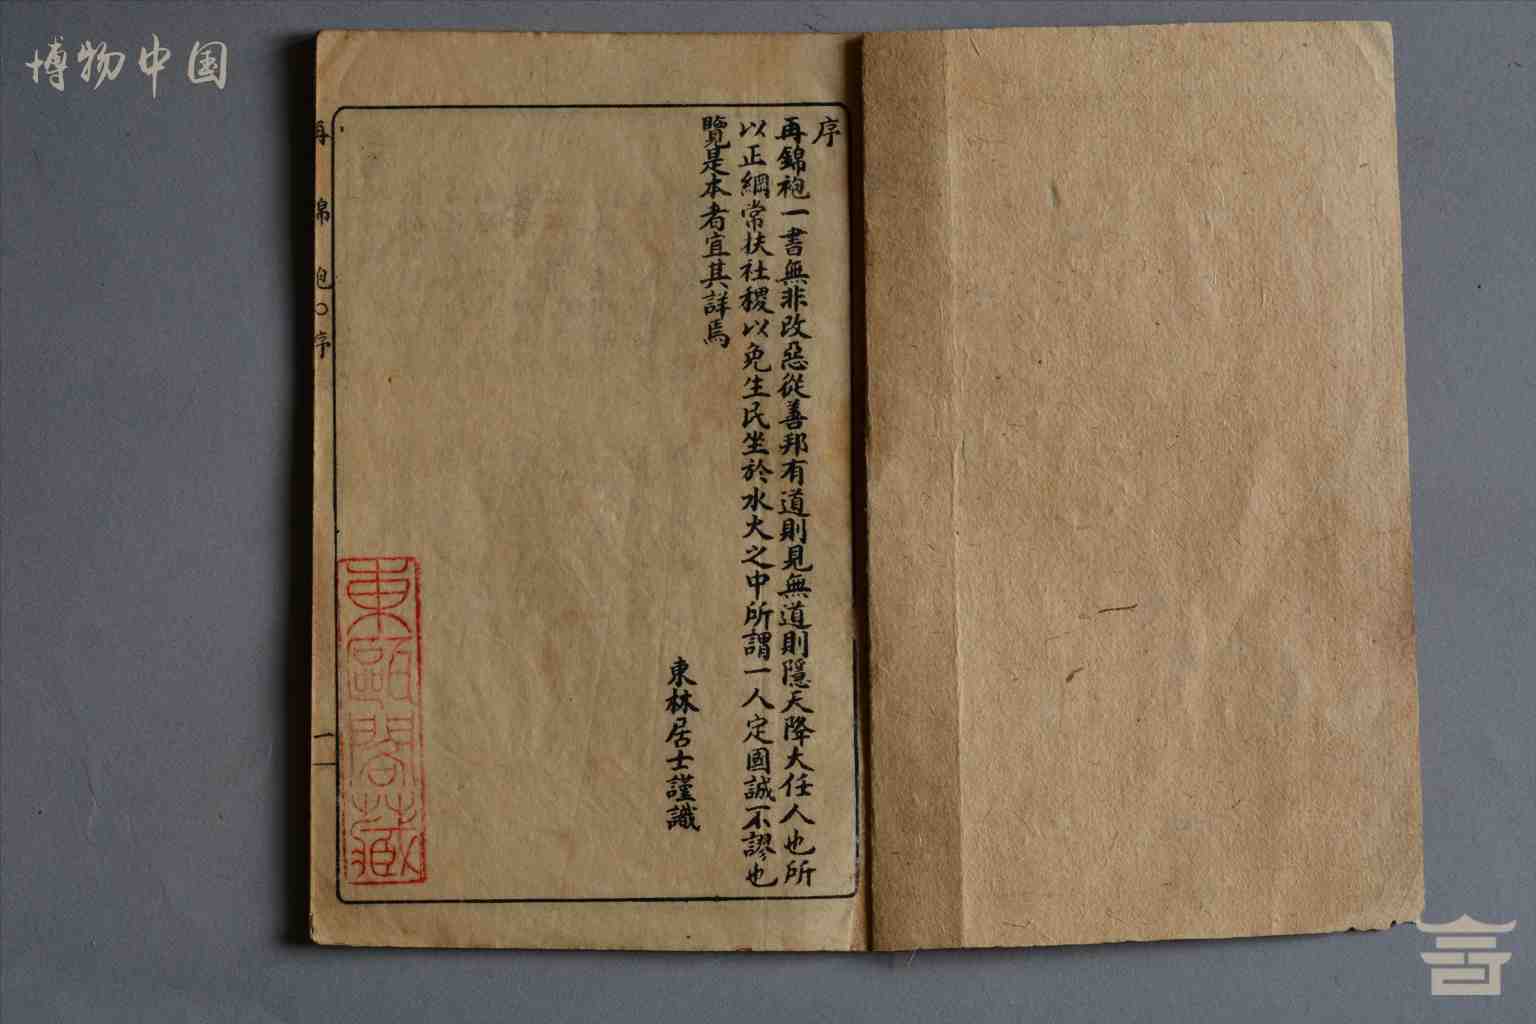 博物中国
序
再錦袍一書無非改惡從善邦有道則見無道則隱天降大任人也所
以正綱常扶社稷以免生民坐於水火之中所謂一人定國誠不謬也
覽是本者宜其詳焉
東林居士謹識
再錦袍○序
一
東甌閣藏